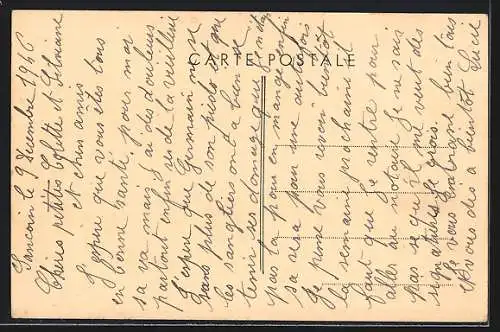 CARTE POSTALE
le 9 décembre 1946
Chères petites Colette et
et chers amis
J'espère que vous êtes tous
en bonne santé, pour moi
sa va mais j'ai des douleurs
partout enfin ses de la vieillesse
J'espère que Germain ne se
sans plus de son pieds et que
les sangliers ont a bien se
tenir ses domage que
pas la pour en manger enfin
sa sera pour une autre fois
Je pense vous revoir bientôt
la semaine prochaine il
faut que je rentre pour
aller au notaire Je ne sais
pas se qu'il me veut des
signatures je crois
Je vous embrasse bien tous
et vous dis a bientôt Lucie